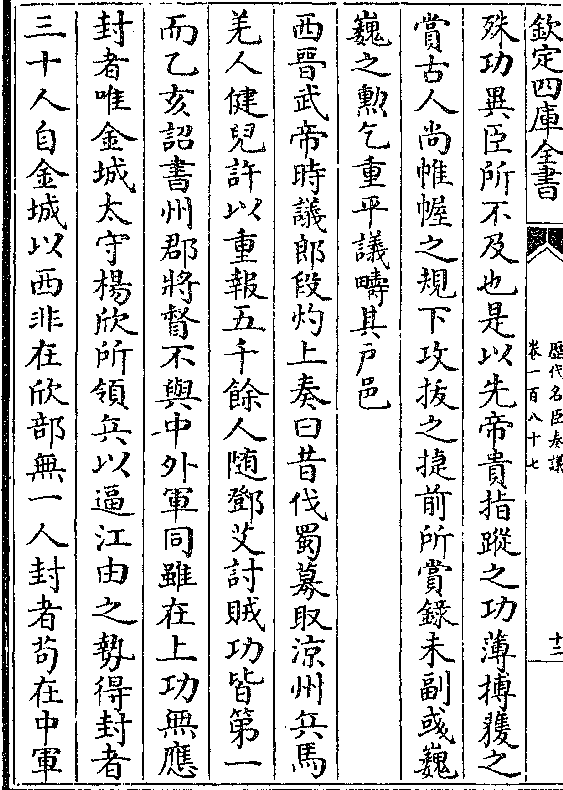 欽定四庫全書
歷代名臣奏議
卷一百八十七
十三
殊功異臣所不及也是以先帝貴指蹤之功薄搏獲之
賞古人尚帷幄之規下攻拔之捷前所賞錄未副彧巍
巍之勲乞重平議疇其戶邑
西晉武帝時議郎段灼上奏曰昔伐蜀募取涼州兵馬
羌人健兒許以重報五千餘人随鄧艾討賊功皆第一
而乙亥詔書州郡將督不與中外軍同雖在上功無應
封者唯金城太守楊欣所領兵以逼江由之勢得封者
三十人自金城以西非在欣部無一人封者苟在中軍